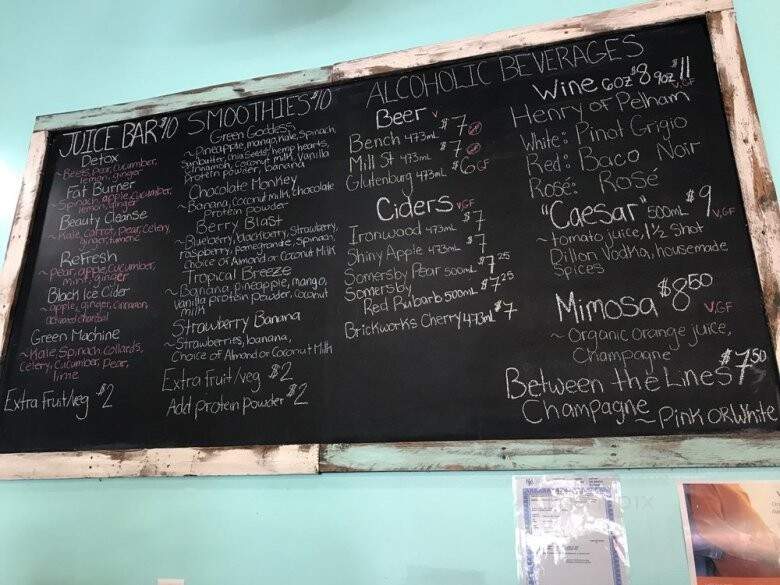 JUICE BAR $10
Detox
~ Beets, pear, cucumber,
lemon, ginger
Fat Burner
~ Spinach, apple, cucumber,
lemon, ginger
Beauty Cleanse
~ Kale, carrot, pear, celery,
ginger, tumeric
Refresh
~ Pear, apple, cucumber,
mint, ginger
Black Ice Cider
~ apple, ginger, cinnamon,
activated charcoal
Green Machine
~ Kale, Spinach, collards,
celery, cucumber, pear,
lime
Extra Fruit/veg $2
SMOOTHIES $10
Green Goddess:
~ Pineapple, mango, kale, spinach,
sunbutter, chia seeds, hemp hearts,
cinnamon, coconut milk, vanilla
protein powder, banana
Chocolate Monkey
~ Banana, coconut milk, chocolate
Protein powder
Berry Blast
~ Blueberry, blackberry, strawberry,
raspberry, pomegranate, spinach,
choice of Almond or Coconut Milk
Tropical Breeze
~ Banana, pineapple, mango,
vanilla protein powder, coconut
milk
Strawberry Banana
~ Strawberries, banana,
Choice of Almond or Coconut Milk
Extra Fruit/veg $2
Add protein powder $2
ALCOHOLIC BEVERAGES
Beer V
Bench 473mL $7
Mill St 473mL $7
Glutenburg 473mL $6 GF
Ciders V,GF
Ironwood 473mL $7
Shiny Apple 473mL $7
Somersby Pear 500mL $7.25
Somersby
Red Rubarb 500mL $7.25
Brickworks Cherry 473mL $7
Wine 6oz $8 9oz $11
V,GF
Henry of Pelham
White: Pinot Grigio
Red: Baco Noir
Rosé: Rosé
"Caesar" 500mL $9 V,GF
~ tomato juice, 1½ Shot
Dillon Vodka, housemade
Spices
Mimosa $8.50
V,GF
~ Organic orange juice,
Champagne
Between the Lines $7.50
Champagne ~ Pink OR White